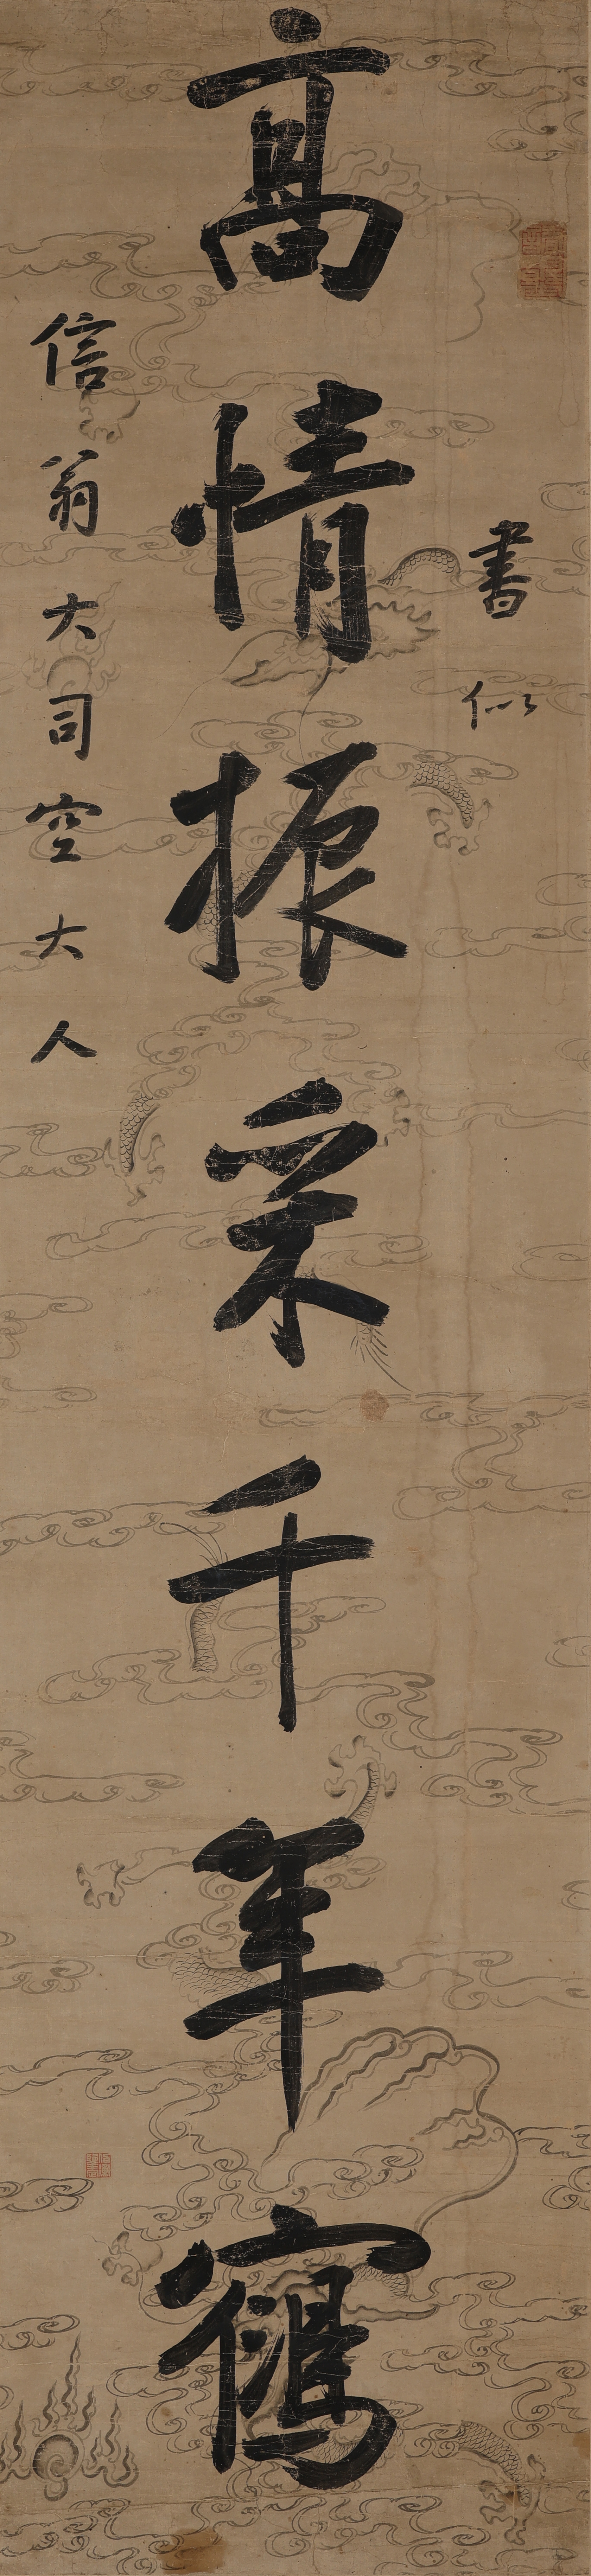 書似
高情振采千年鶴
信翁大司空大人